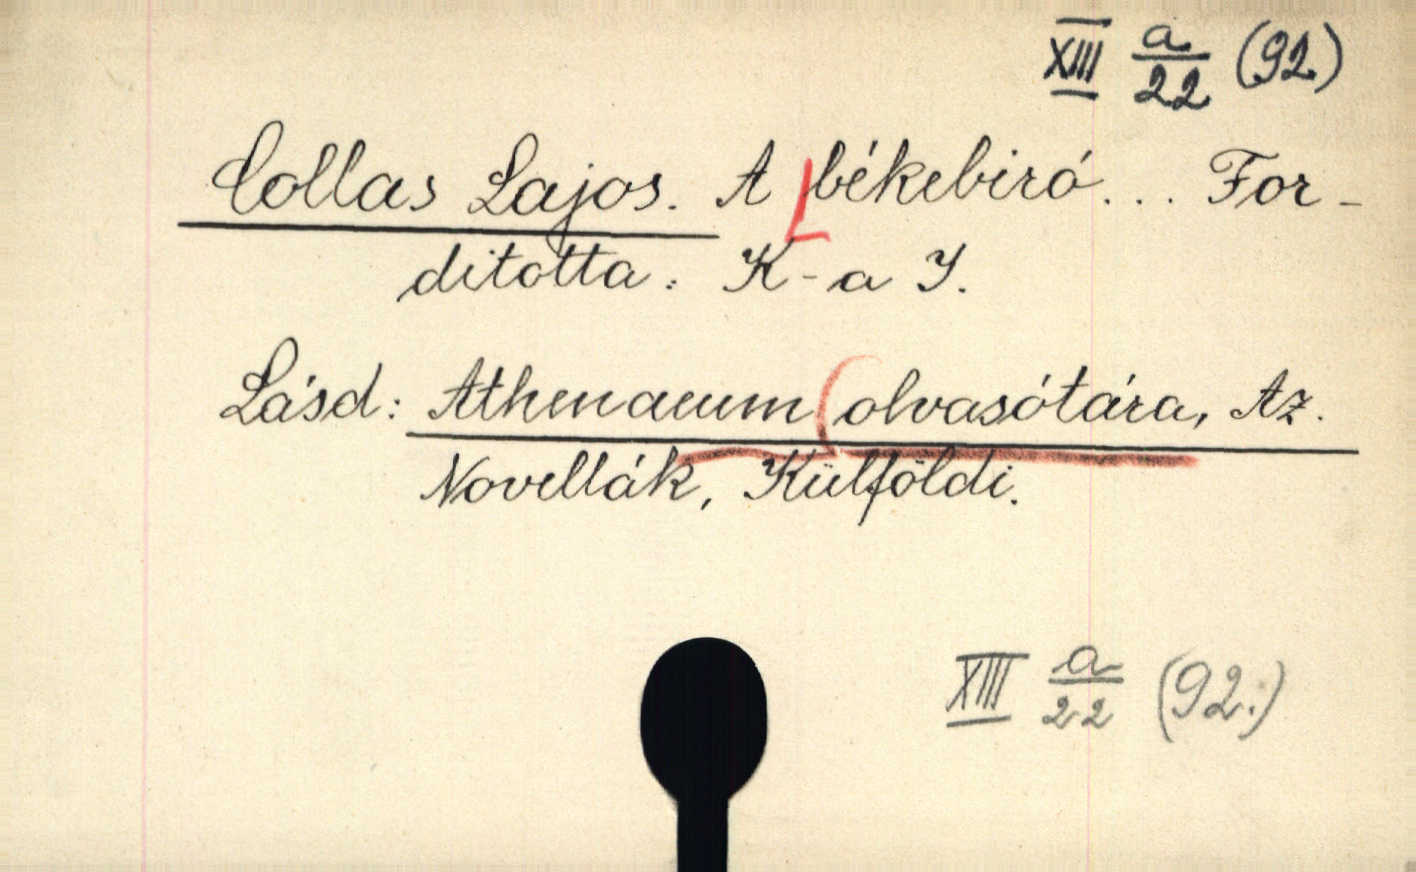 XIII a/22 (92)
Collas Lajos. A békebiró... For-
ditotta: K-a I.
Lásd: Athenaeum olvasótára, Az.
Novellák, Külföldi.
XIII a/22 (92.)